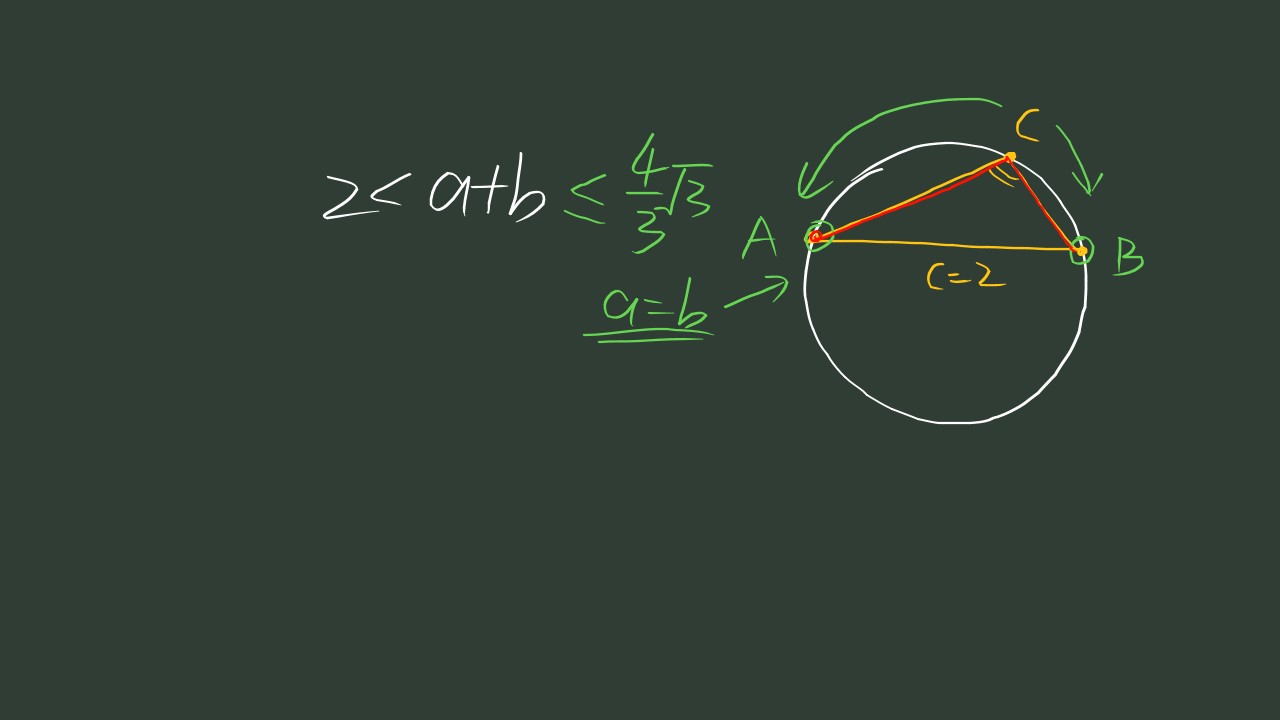 2 < a+b ≤ 4/3 √3
a=b
C
A
B
c=2